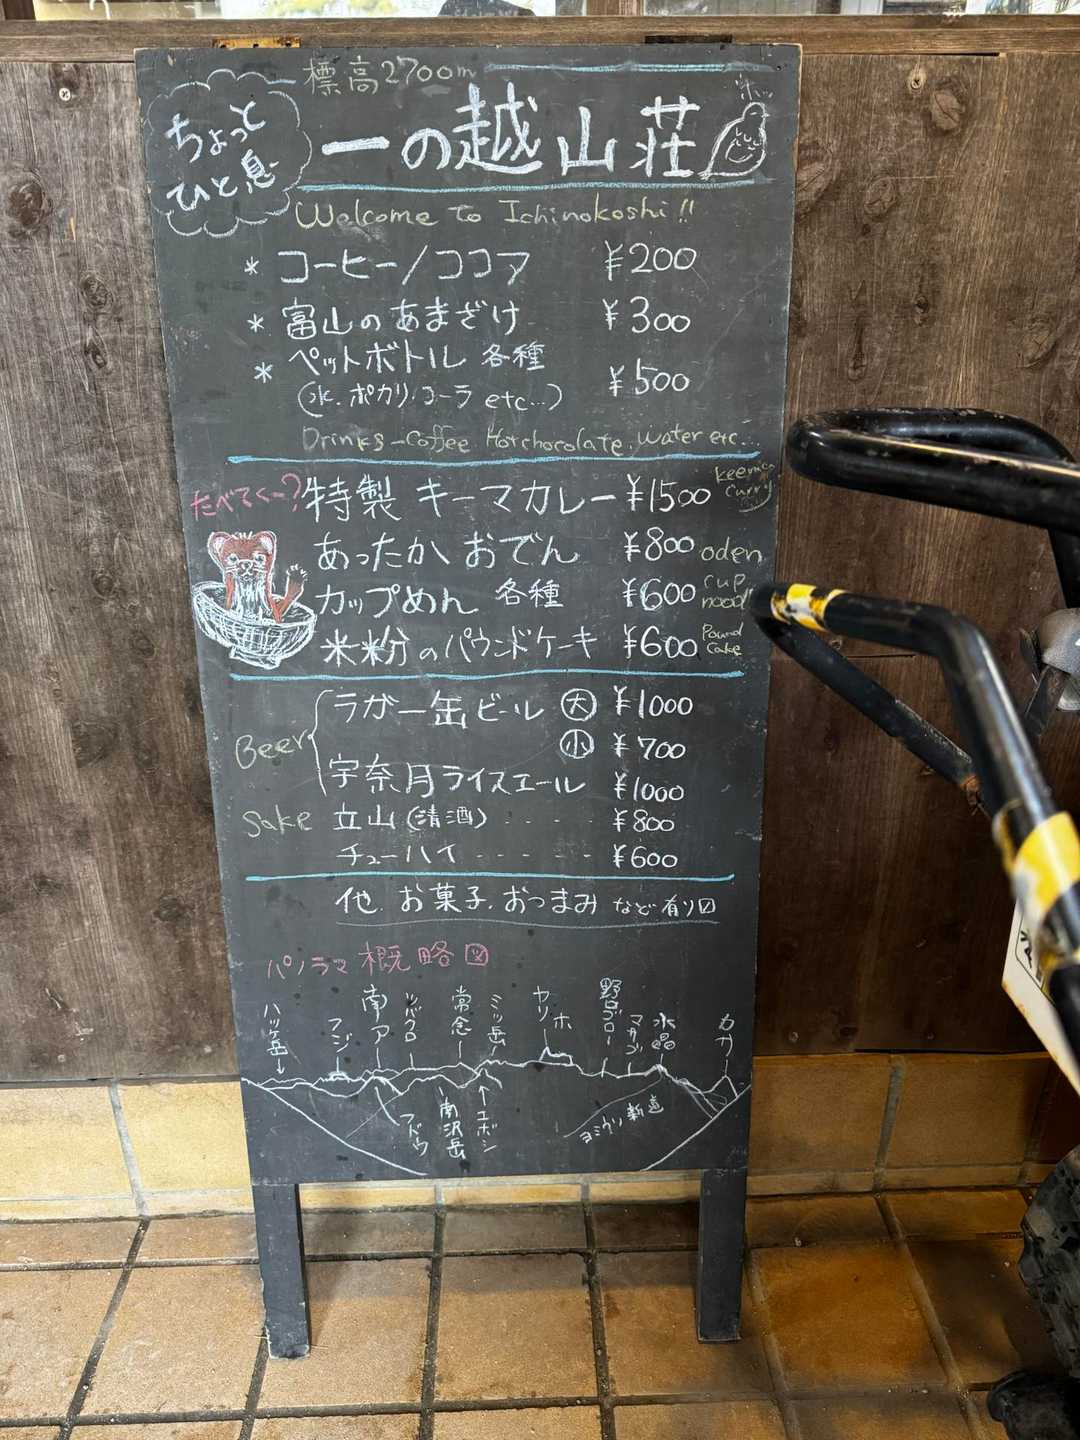 標高2700m
ちょっと
ひと息
一の越山荘
ホッ
Welcome to Ichinokoshi!!
* コーヒー/ココア ¥200
* 富山のあまざけ ¥300
* ペットボトル 各種 ¥500
(水.ポカリ.コーラ etc...)
Drinks-Coffee Hotchocolate.water etc...
たべてくー?
特製 キーマカレー ¥1500 keema curry
あったか おでん ¥800 oden
カップめん 各種 ¥600 cup
米粉のパウンドケーキ ¥600 Pound Cake
Beer
ラガー缶ビール 大 ¥1000
小 ¥700
宇奈月ライスエール ¥1000
Sake 立山 (清酒) ..... ¥800
チューハイ ------ ¥600
他.お菓子.おつまみ など有り〼
パノラマ概略図
八ヶ岳
フジ
南ア
常念
三ッ岳
ヤリ
ホ
野口ゴロー
水晶
カサ
南沢岳
エボシ
ヨミウリ新道